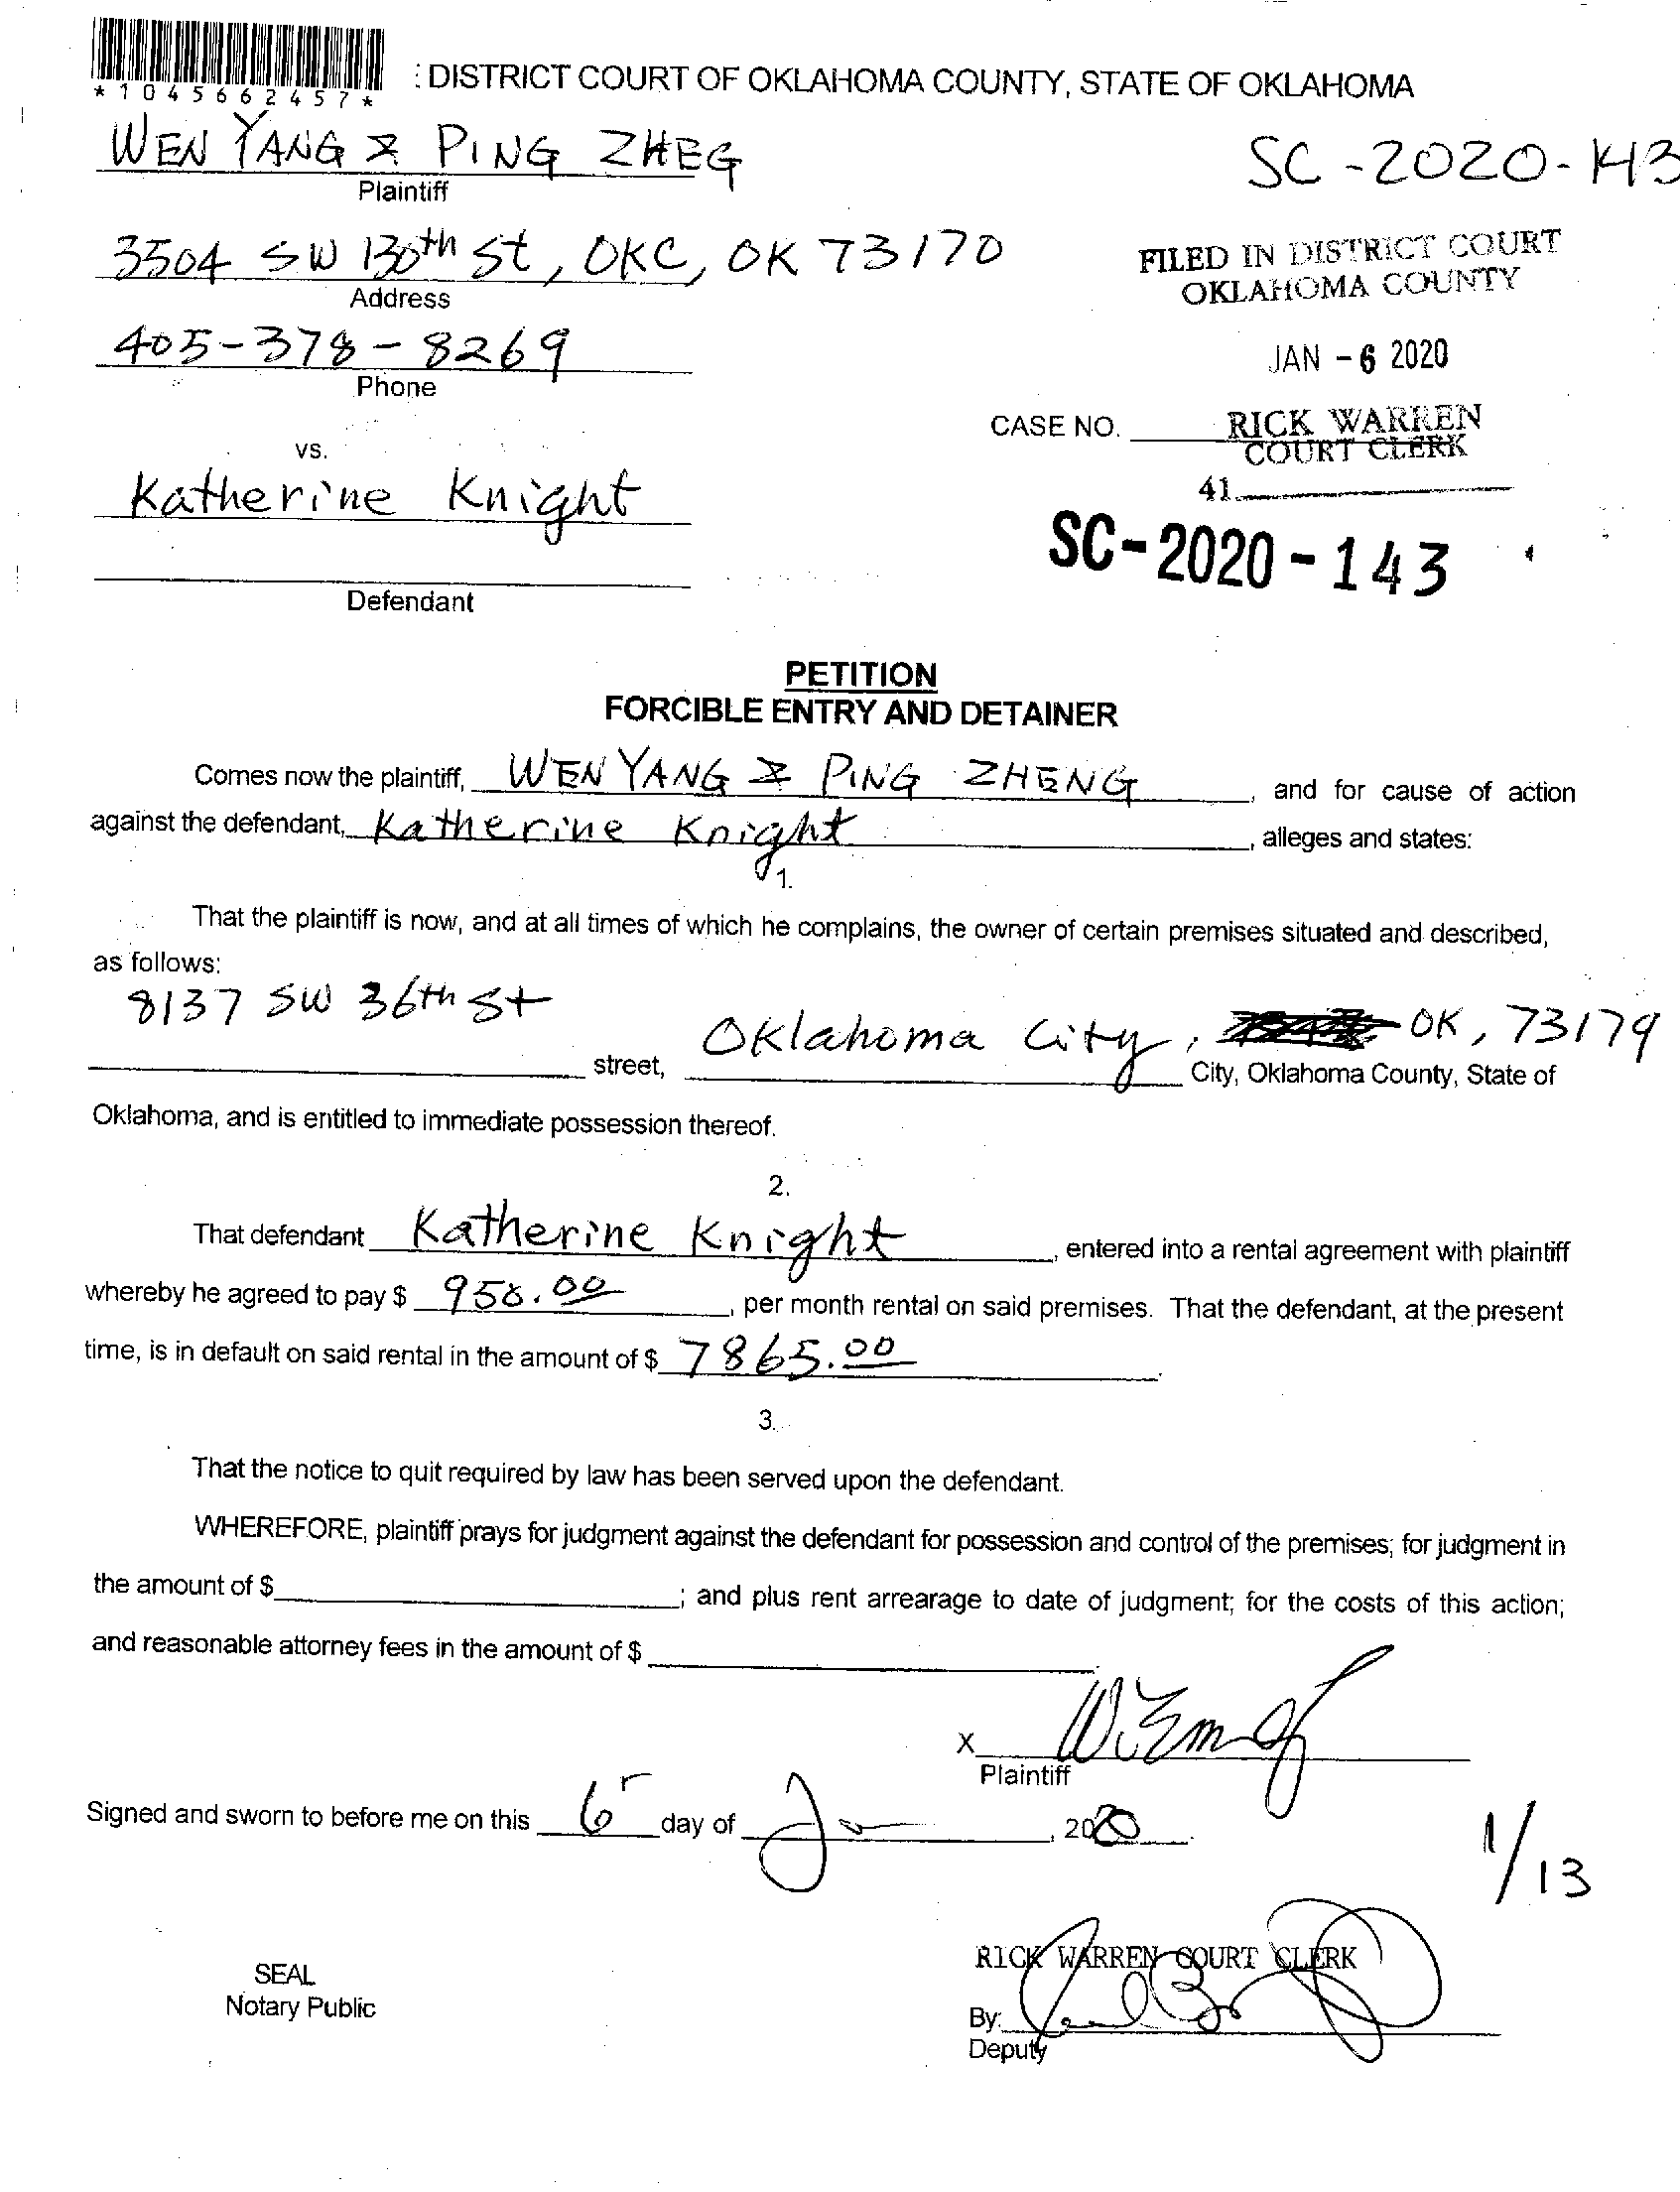 *1045662457*
: DISTRICT COURT OF OKLAHOMA COUNTY, STATE OF OKLAHOMA
WEN YANG & PING ZHEG
Plaintiff
SC-2020-143
3504 SW 130th St, OKC, OK 73170
Address
FILED IN DISTRICT COURT
OKLAHOMA COUNTY
405-378-8269
Phone
JAN -6 2020
CASE NO.
RICK WARREN
COURT CLERK
vs.
41
Katherine Knight
SC-2020-143
Defendant
PETITION
FORCIBLE ENTRY AND DETAINER
Comes now the plaintiff, WEN YANG & PING ZHENG, and for cause of action
against the defendant, Katherine Knight, alleges and states:
1.
That the plaintiff is now, and at all times of which he complains, the owner of certain premises situated and described,
as follows:
8137 SW 36th St
street, Oklahoma City, OK, 73179 City, Oklahoma County, State of
Oklahoma, and is entitled to immediate possession thereof.
2.
That defendant Katherine Knight, entered into a rental agreement with plaintiff
whereby he agreed to pay $ 958.00, per month rental on said premises. That the defendant, at the present
time, is in default on said rental in the amount of $ 7865.00.
3.
That the notice to quit required by law has been served upon the defendant.
WHEREFORE, plaintiff prays for judgment against the defendant for possession and control of the premises; for judgment in
the amount of $ ; and plus rent arrearage to date of judgment; for the costs of this action;
and reasonable attorney fees in the amount of $
X
Plaintiff
Signed and sworn to before me on this 6 day of J, 2020
1/13
RICK WARREN COURT CLERK
SEAL
Notary Public
By:
Deputy